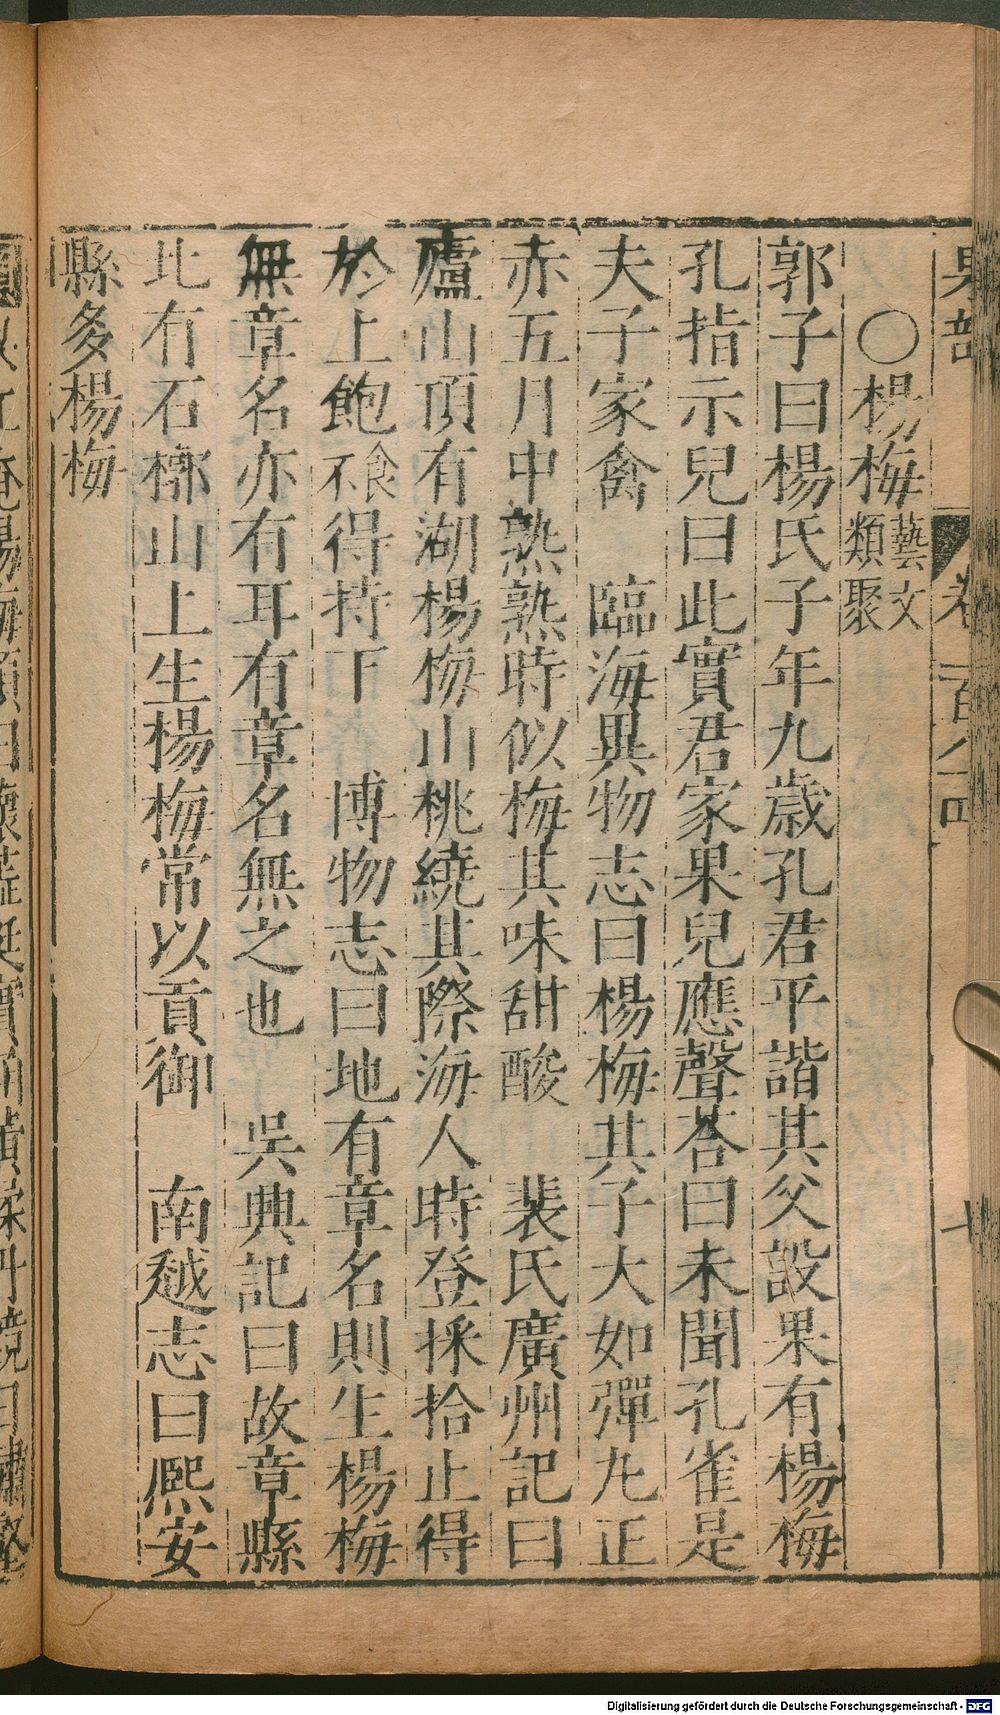 果部 卷一百八十四 七
○楊梅 藝文類聚
郭子曰楊氏子年九歲孔君平詣其父設果有楊梅
孔指示兒曰此實君家果兒應聲荅曰未聞孔雀是
夫子家禽 臨海異物志曰楊梅其子大如彈丸正
赤五月中熟熟時似梅其味甜酸 裴氏廣州記曰
廬山頂有湖楊梅山桃繞其際海人時登採拾止得
於上飽食不得持下 博物志曰地有章名則生楊梅
無章名亦有耳有章名無之也 吳興記曰故章縣
北有石槨山上生楊梅常以貢御 南越志曰熙安
縣多楊梅
Digitalisierung gefördert durch die Deutsche Forschungsgemeinschaft - DFG